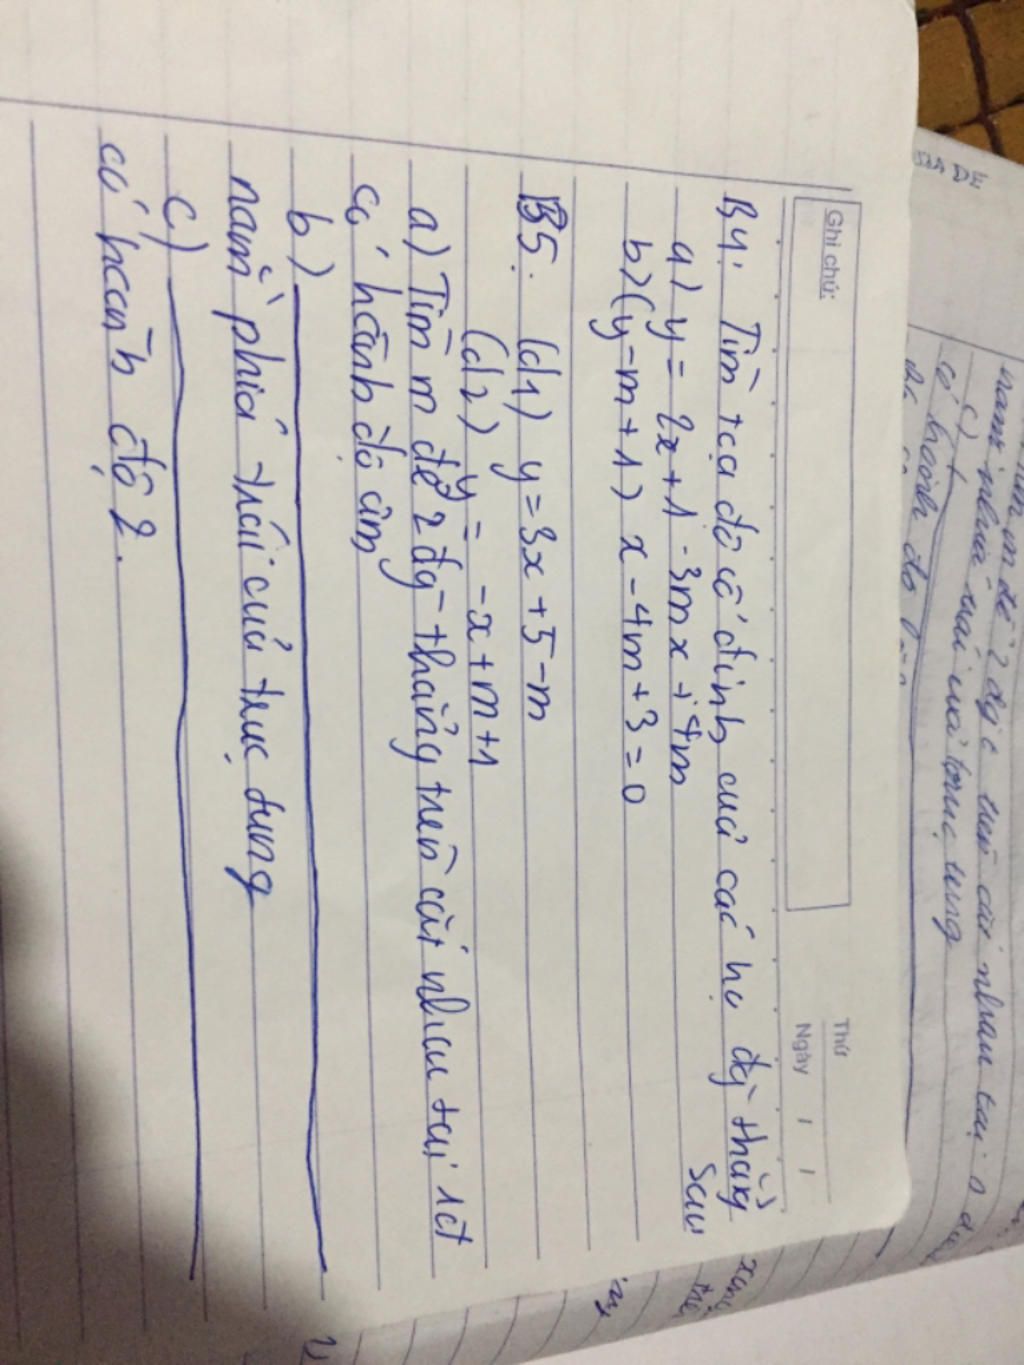 Ghi chú:
Thứ
Ngày / /
B4: Tìm tọa độ cố định của các họ đg thẳng
sau
a) y = 2x + 1 - 3mx + 4m
b) (y - m + 1) x - 4m + 3 = 0
B5: (d1) y = 3x + 5 - m
(d2) y = -x + m + 1
a) Tìm m để 2 đg thẳng trên cắt nhau tại 1 đ'
có hoành độ âm
b)
nằm phía trái của trục tung
c)
có hoành độ 2.
c)